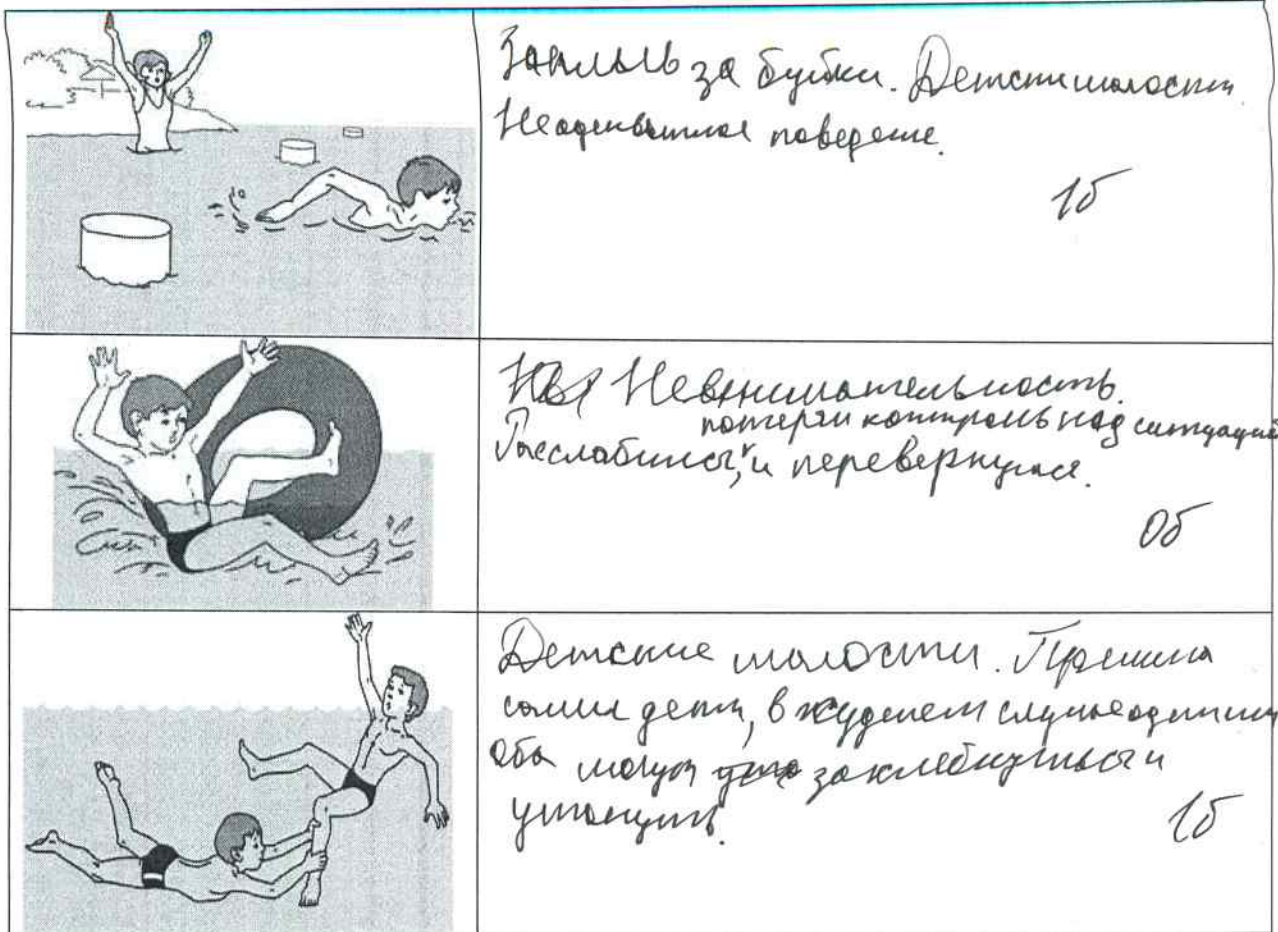 Заплыв за буйки. Детские шалости.
Неадекватное поведение.
1б
Невнимательность.
потерял контроль над ситуацией
Расслабился, и перевернулся.
0б
Детские шалости. Причина
сами дети, в худшем случае один или
оба могут захлебнуться и
утонуть.
1б